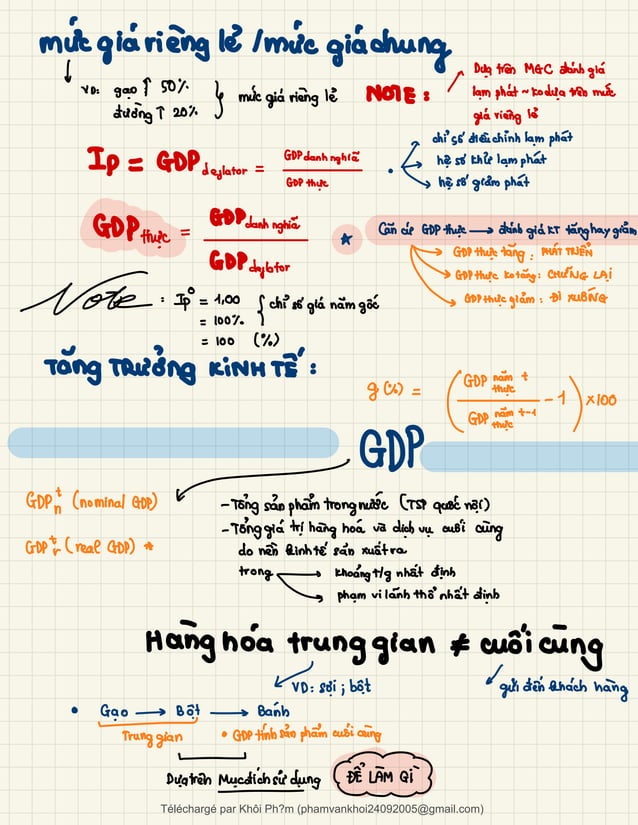 mức giá riêng lẻ / mức giá chung
VD: gạo ↑ 50%
đường ↑ 20%
} mức giá riêng lẻ
NOTE :
Dựa trên MGC đánh giá
lạm phát ~ ko dựa trên mức
giá riêng lẻ
Ip = GDP deflator = GDP danh nghĩa / GDP thực
• chỉ số điều chỉnh lạm phát
hệ số khử lạm phát
hệ số giảm phát
GDP thực = GDP danh nghĩa / GDP deflator
* Căn cứ GDP thực → đánh giá KT tăng hay giảm
GDP thực tăng : PHÁT TRIỂN
GDP thực ko tăng : CHỮNG LẠI
GDP thực giảm : ĐI XUỐNG
Note : Ip⁰ = 1,00 { chỉ số giá năm gốc
= 100%
= 100 (%)
TĂNG TRƯỞNG KINH TẾ :
g (%) = ( GDP thực năm t / GDP thực năm t-1 − 1 ) × 100
GDP
GDP n t (nominal GDP)
GDP r t (real GDP) *
- Tổng sản phẩm trong nước (TSP quốc nội)
- Tổng giá trị hàng hoá và dịch vụ cuối cùng
do nền kinh tế sản xuất ra
trong → khoảng t/g nhất định
→ phạm vi lãnh thổ nhất định
Hàng hóa trung gian ≠ cuối cùng
VD: sợi ; bột
gửi đến khách hàng
• Gạo → Bột → Bánh
Trung gian
• GDP tính sản phẩm cuối cùng
Dựa trên Mục đích sử dụng
ĐỂ LÀM GÌ
Téléchargé par Khôi Ph?m (phamvankhoi24092005@gmail.com)